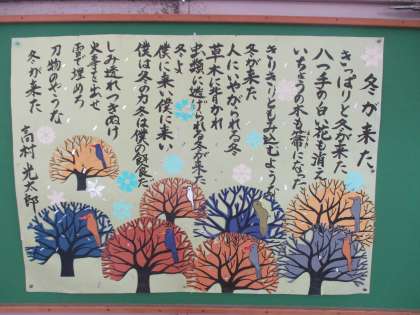 冬が来た。
きっぱりと冬が来た
八つ手の白い花も消え
いちょうの木も箒になった
きりきりともみ込むような
冬が来た
人にいやがられる冬
草木に背かれ
虫類に逃げられる冬が来た
冬よ
僕に来い僕に来い
僕は冬の力冬は僕の餌食だ
しみ透れつきぬけ
火事を出せ
雪で埋めろ
刃物のような
冬が来た
高村光太郎